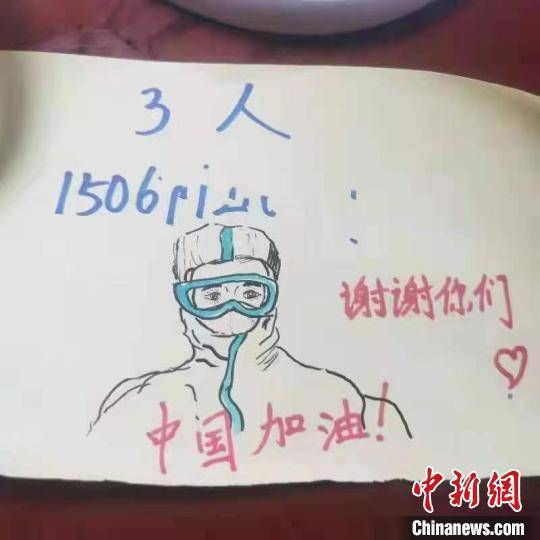 3人
谢谢你们
中国加油!
中新网
Chinanews.com